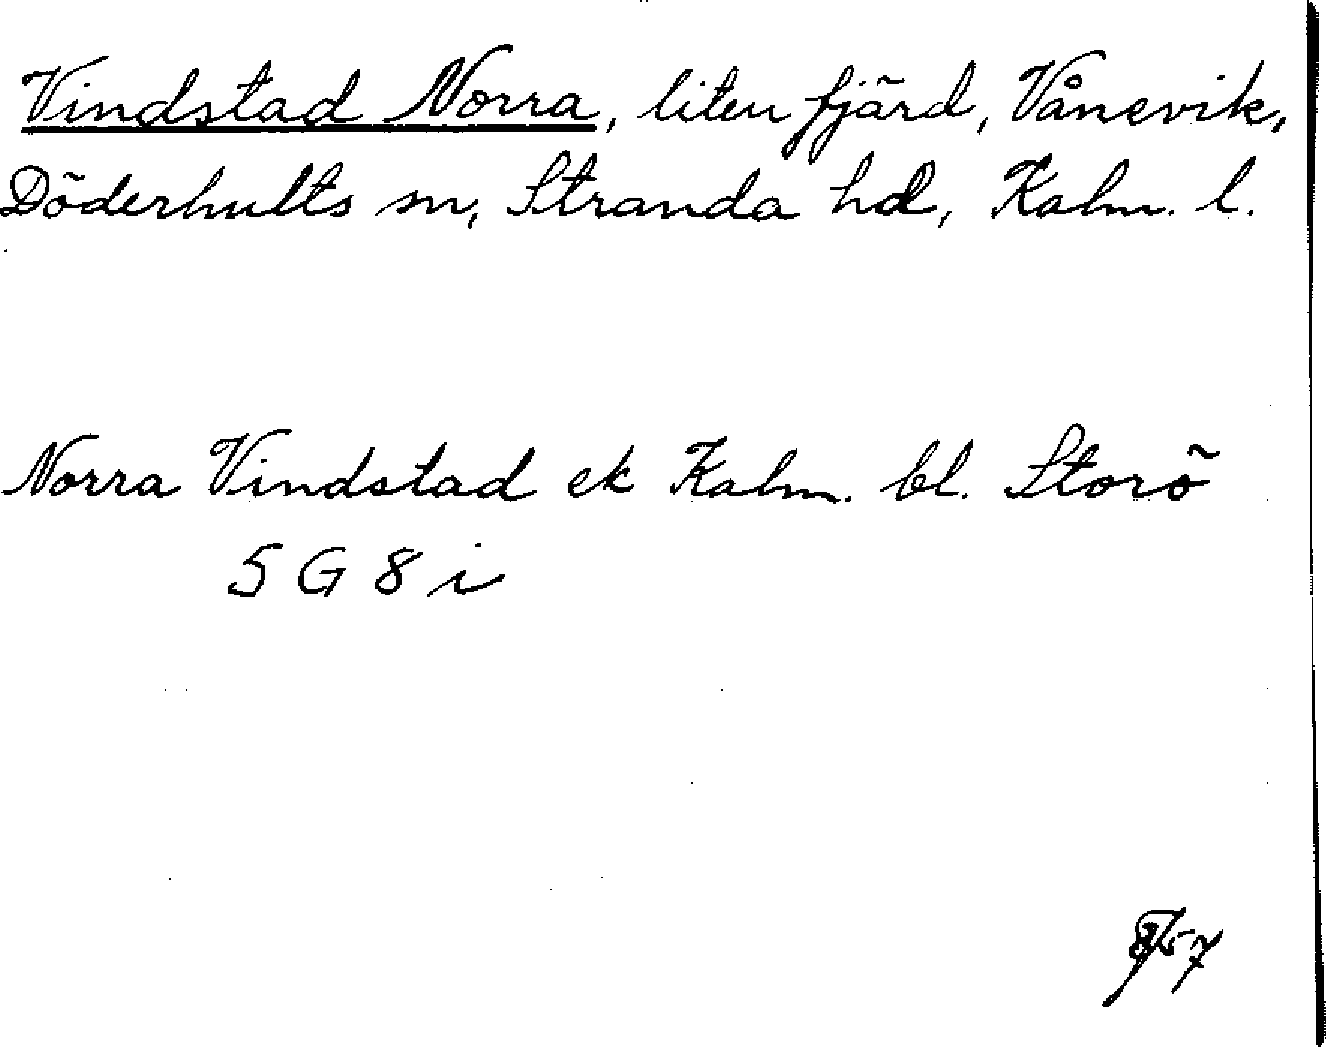 Vindstad Norra, liten fjärd, Vånevik,
Döderhults sn, Stranda hd, Kalm. l.
Norra Vindstad ek Kalm. bl. Storö
5 G 8 i